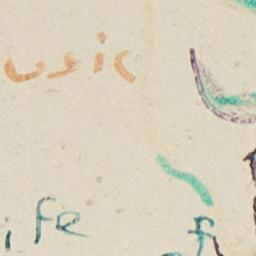 usic
ife
of